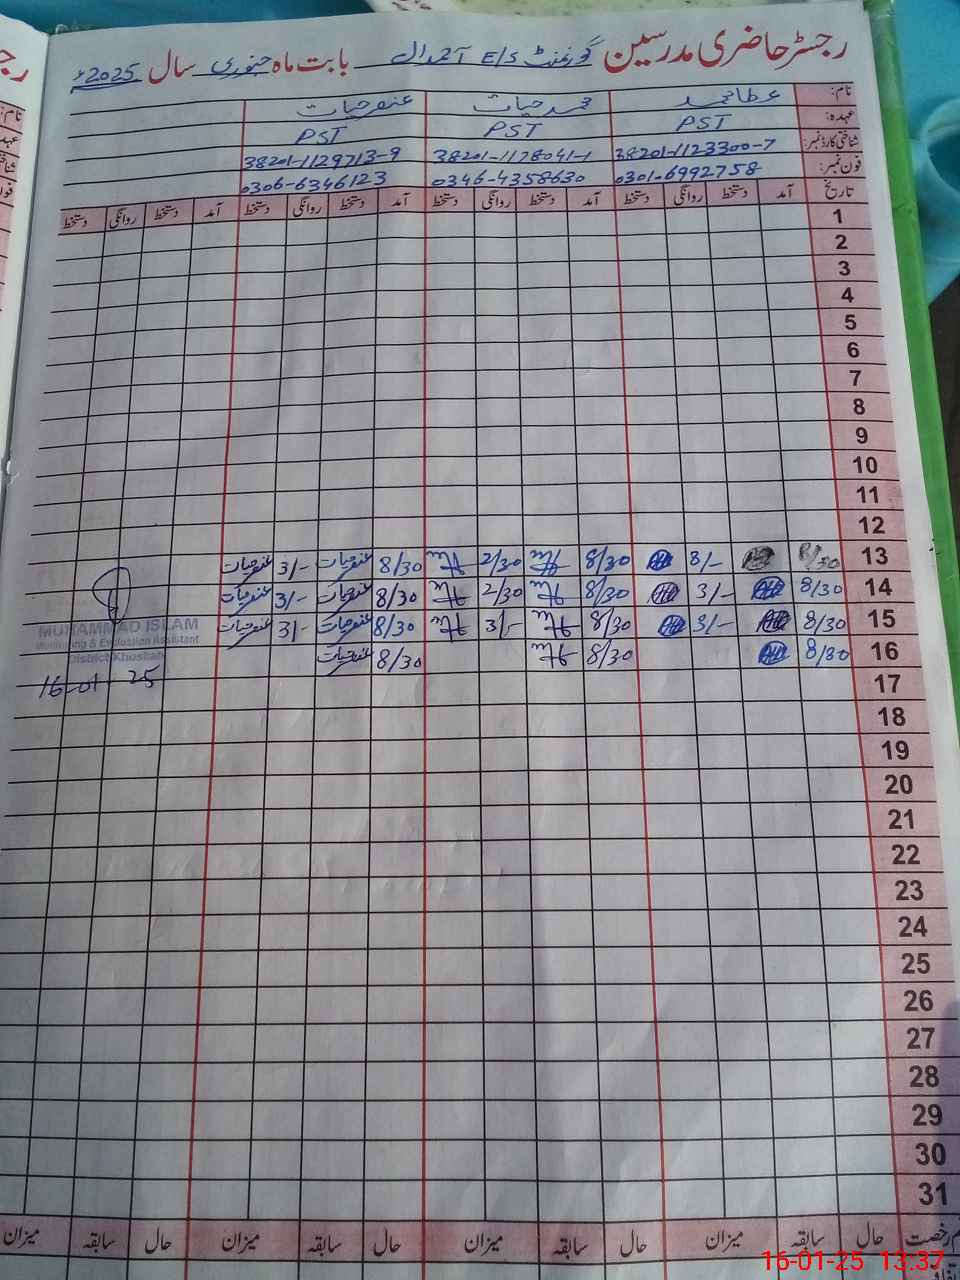 رجسٹر حاضری مدرسین گورنمنٹ E/S آحمدال بابت ماہ جنوری سال 2025ء
نام: عطا محمد محمد حیات عنصر حیات
عہدہ: PST PST PST
شناختی کارڈ نمبر: 38201-1123300-7 38201-1178041-1 38201-1129713-9
فون نمبر: 0301-6992758 0346-4358630 0306-6346123
تاریخ آمد دستخط روانگی دستخط آمد دستخط روانگی دستخط آمد دستخط روانگی دستخط آمد دستخط روانگی دستخط
1
2
3
4
5
6
7
8
9
10
11
12
13 8/30 3/- 8/30 2/30 8/30 عنصر حیات 3/- عنصر حیات
14 8/30 3/- 8/30 2/30 8/30 عنصر حیات 3/- عنصر حیات
15 8/30 3/- 8/30 3/- 8/30 عنصر حیات 3/- عنصر حیات
16 8/30 8/30 8/30 عنصر حیات
MUHAMMAD ISLAM
Monitoring & Evaluation Assistant
District Khushab
16-01-25
17
18
19
20
21
22
23
24
25
26
27
28
29
30
31
رخصت حال سابقہ میزان حال سابقہ میزان حال سابقہ میزان حال سابقہ میزان
16-01-25 13:37